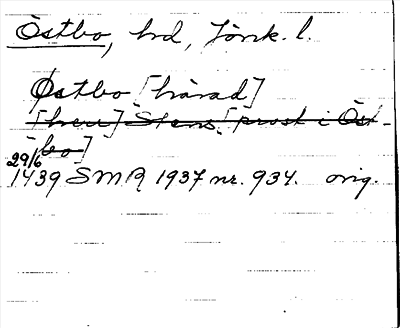 Östbo, hrd, Jönk. l.
Østbo [härad]
[herr] Stens [prost i Öst-
bo]
29/6
1439 SMR 1937 nr. 934. orig.